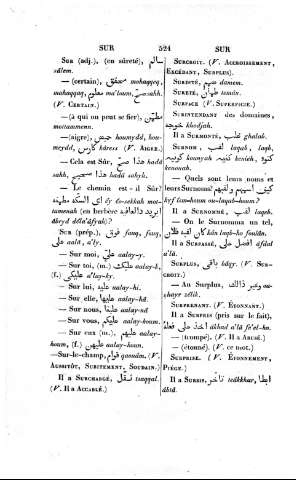 SUR 524 SUR
SUR (adj.), (en sûreté), سالم
sâlem.
— (certain), محقق mohaqqoq,
mohaqqaq, معلوم ma'loum, صحّ sahh.
(V. CERTAIN.)
— (à qui on peut se fier), مومن
motaamenn.
— (aigre), حميض houmydd, hou-
meydd, قارس kâress (V. AIGRE.)
— Cela est SÛR, هذا صحّ hadâ
sahh, هذا صحيح hadâ sahyh.
— Le chemin est-il SÛR?
اى السكة
(en berbère)
SUR (prép.), فوق fouq, fouq,
على aalä, a'ly.
— Sur moi, علىّ aalay-y.
— Sur toi, (m.), عليك aalay-k,
(f.) عليكى a'lay-ky.
— Sur lui, عليه aalay-hi.
— Sur elle, عليها aalay-hâ.
— Sur nous, علينا aalay-nâ.
— Sur vous, عليكم aalay-koum.
— Sur eux (m.), عليهم aalay-
houm, (f.) عليهن aalay-houn.
—Sur-le-champ, قوام qaouâm. (V.
AUSSITÔT, SUBITEMENT, SOUDAIN.)
Il a SURCHARGÉ, ثقّل tsaqqal.
(V. Il a ACCABLÉ.)
SURCROIT. (V. ACCROISSEMENT,
EXCÉDANT, SURPLUS.)
SURDITÉ, صمم samem.
SURETÉ, امان amân.
SURFACE (V. SUPERFICIE.)
SURINTENDANT des domaines,
خوجه khodjah.
Il a SURMONTÉ, غلب ghalab.
SURNOM, لقب laqb,
كنوه kounyah, كنيه kenieh,
kenouah.
— Quels sont leurs noms et
leurs SURNOMS?
kyf
Il a SURNOMMÉ, لقب laqeb.
— On le SURNOMMA un tel,
كان لقبه فلان kân laqb-ho foulân.
Il a SURPASSÉ,
SURPLUS, باقى bâqy. (V. SUR-
CROIT.)
— Au SURPLUS, وغير ذلك ou-
ghayr zêlik.
SURPRENANT. (V. ÉTONNANT.)
Il a SURPRIS (pris sur le fait),
اخذ على فعله
— (trompé). (V. Il a ABUSÉ.)
— (étonné). (V. ce mot.)
SURPRISE. (V. ÉTONNEMENT,
PIÉGE.)
Il a SURSIS, تاخّر teâkkhar, ابطا
âbtâ.